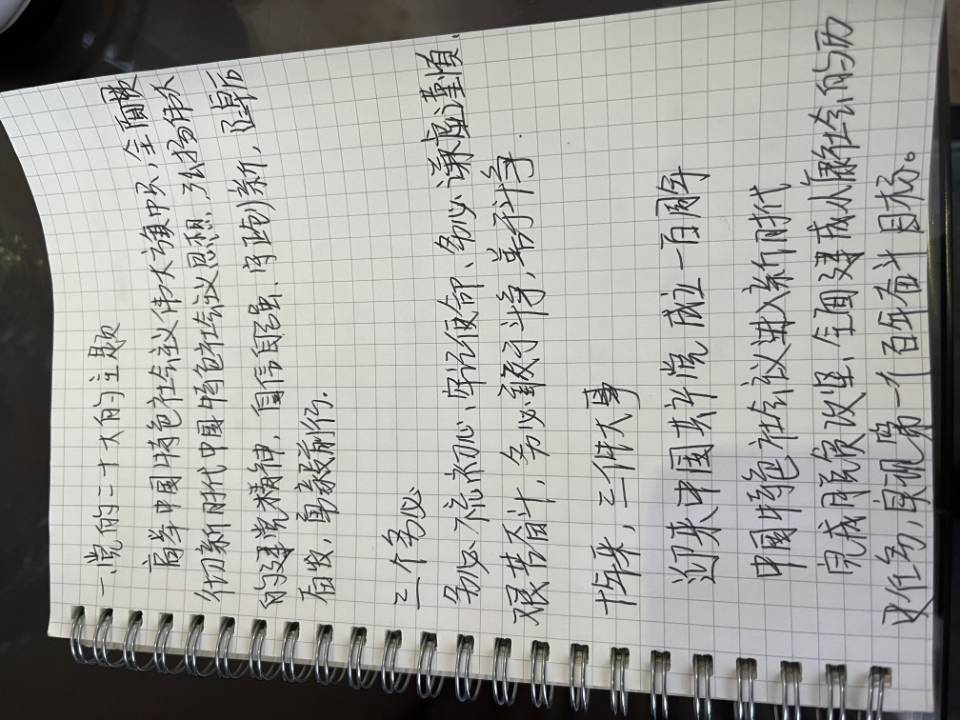 一、党的二十大的主题
高举中国特色社会主义伟大旗帜，全面贯
彻新时代中国特色社会主义思想，弘扬伟大
的建党精神，自信自强、守正创新，踔厉
奋发，勇毅前行.
三个务必
务必不忘初心、牢记使命、务必谦虚谨慎.
艰苦奋斗，务必敢于斗争，善于斗争.
十年来，三件大事
迎来中国共产党成立一百周年
中国特色社会主义进入新时代
完成脱贫攻坚、全面建成小康社会的历
史任务，实现第一个百年奋斗目标。